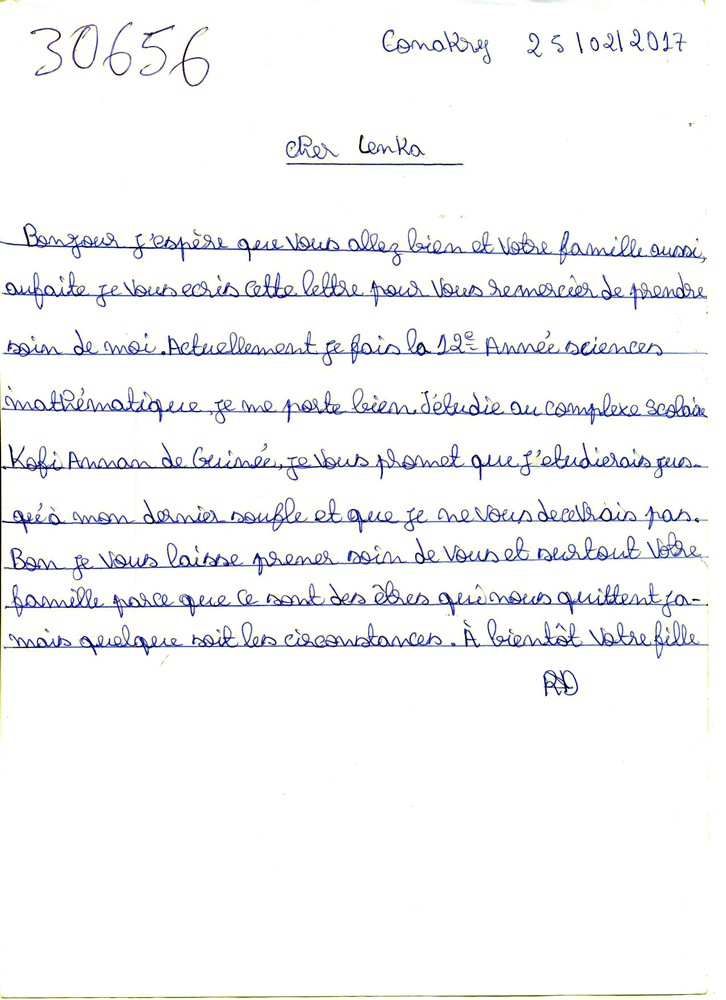 30656
Conakry 25/02/2017
cher Lenka
Bonjour j'espère que vous allez bien et votre famille aussi,
aufaite je vous ecris cette lettre pour vous remercier de prendre
soin de moi. Actuellement je fais la 12e Année sciences
mathématique, je me porte bien. J'étudie au complexe scolaire
Kofi Annan de Guinée, je vous promet que j'etudierais jus-
qu'à mon dernier soufle et que je ne vous decevrais pas.
Bon je vous laisse prener soin de vous et surtout votre
famille parce que ce sont des êtres qui nous quittent ja-
mais quelque soit les circonstances. À bientôt votre fille